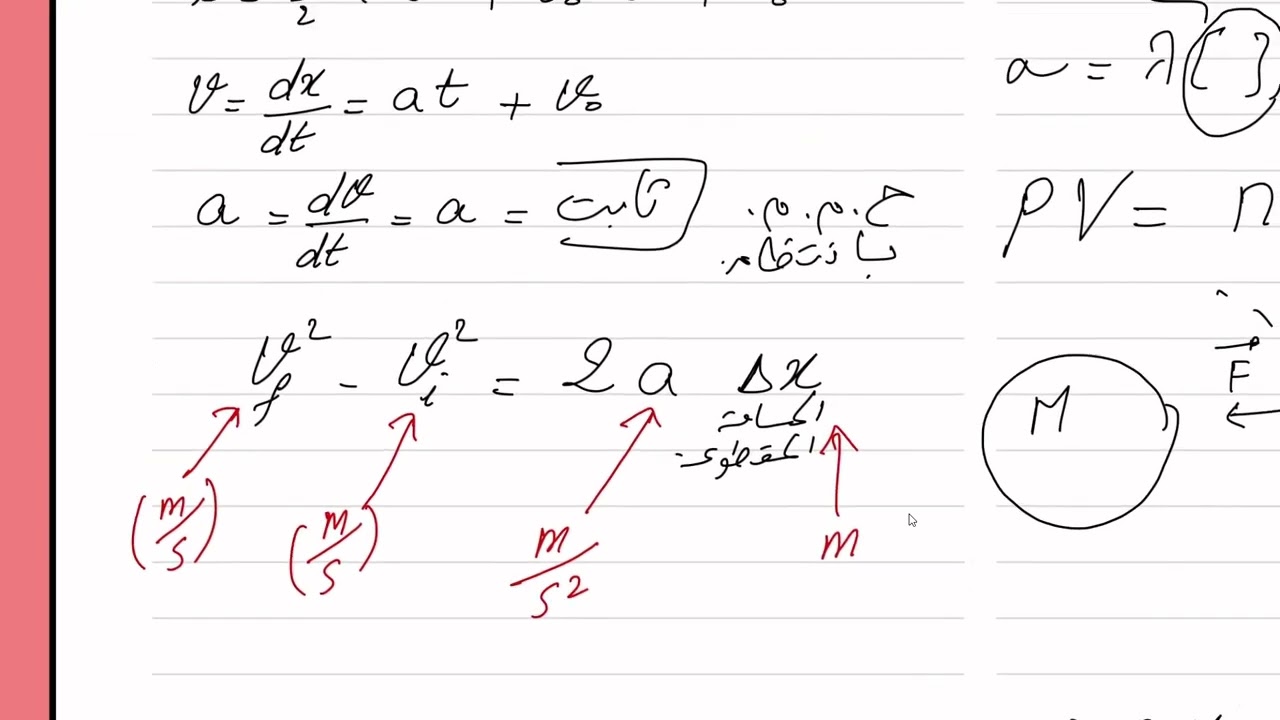 v = dx/dt = at + v₀
a = dv/dt = a = ثابت ح.م.م.
بانتظام.
v_f² - v_i² = 2 a Δx
المسافة
المقطوعة
(m/s) (m/s) m/s² m
a = λ[ ]
PV = n
F
M